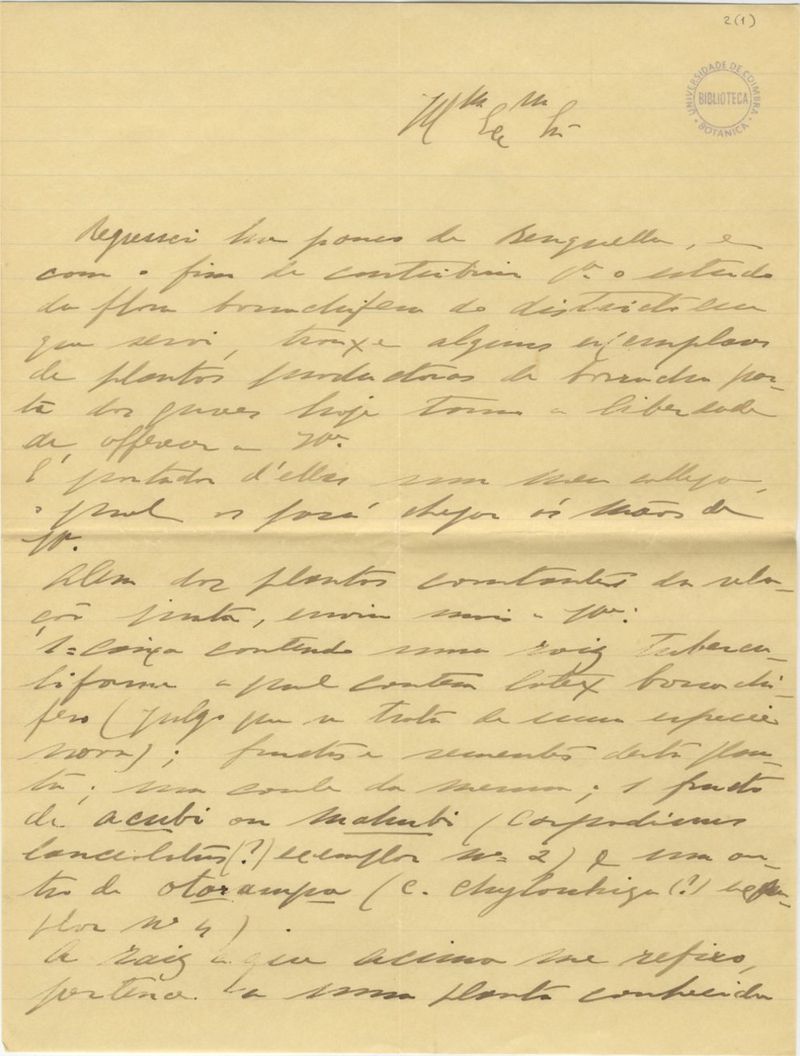 2(1)
UNIVERSIDADE DE COIMBRA
BIBLIOTECA
BOTANICA
Exmo Sr
Regressei ha pouco de Benguella, e
com o fim de contribuir pa o estudo
da flora borrachifera do districto em
que servi, trouxe alguns exemplares
de plantas productoras de borracha par-
te dos quaes hoje tomo a liberdade
de offerecer a Va.
É portador d'ellas um meu collega,
o qual os fará chegar ás mãos de
Va.
Alem das plantas constantes da rela-
ção junta, envio mais a Va:
1=caixa contendo uma raiz tubercu-
liforme a qual contem latex borrachi-
fero (julgo que se trata de uma especie
nova); fructos e sementes desta plan-
ta; um caule da mesma; 1 fructo
de acubi ou mahubi (Carpodinus
lanceolatus(?) exemplar nº 2) e um ou-
tro de otarampa (C. Chylorhiza(?) exem-
plar nº 4).
A raiz a que acima me refiro,
pertence a uma planta conhecida